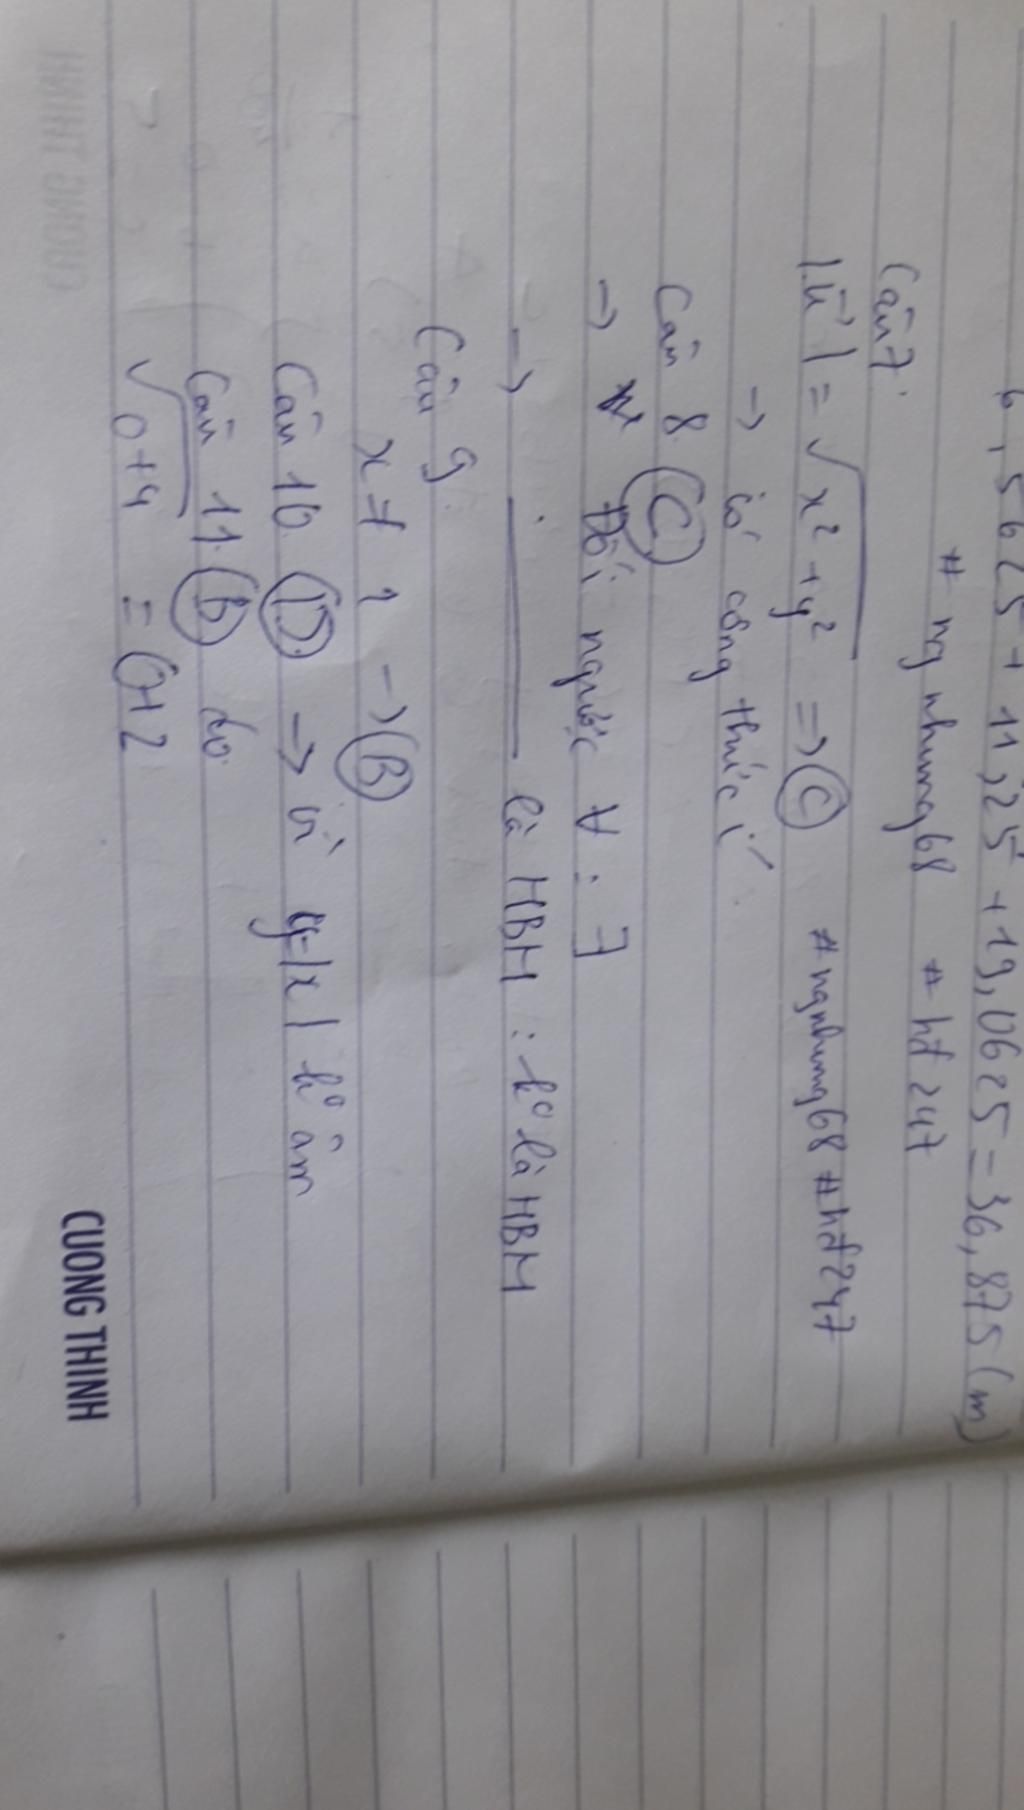 6,5625 + 11,25 + 19,0625 = 36,875 (m)
# ngnhung68 # hđ247
Câu 7.
|ū| = √x² + y² => C # ngnhung68 # hđ247
→ có công thức í
Câu 8. C
→ Đối ngược ∀ : ∃
→ là HBH : k° là HBH
Câu 9.
x ≠ 1 → B
Câu 10 D. → vì y=|x| k° âm
Câu 11. B do
√0+4 = 0+2
CUONG THINH